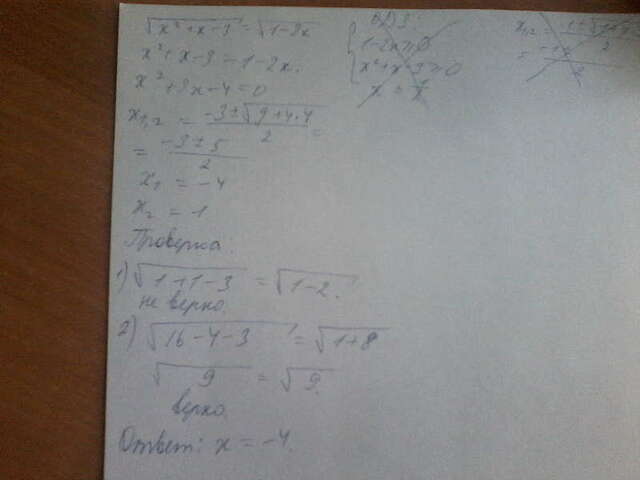 √x²+x-3 = √1-2x
x²+x-3=1-2x.
x²+3x-4=0
x₁,₂ = -3±√9+4·4 / 2 =
= -3±5 / 2
x₁ = -4
x₂ = 1
Проверка:
1) √1+1-3 = √1-2.
не верно.
2) √16-4-3 = √1+8
√9 = √9.
верно.
Ответ: x = -4.
ОДЗ:
1-2x≥0
x²+x-3≥0
x₁,₂
2